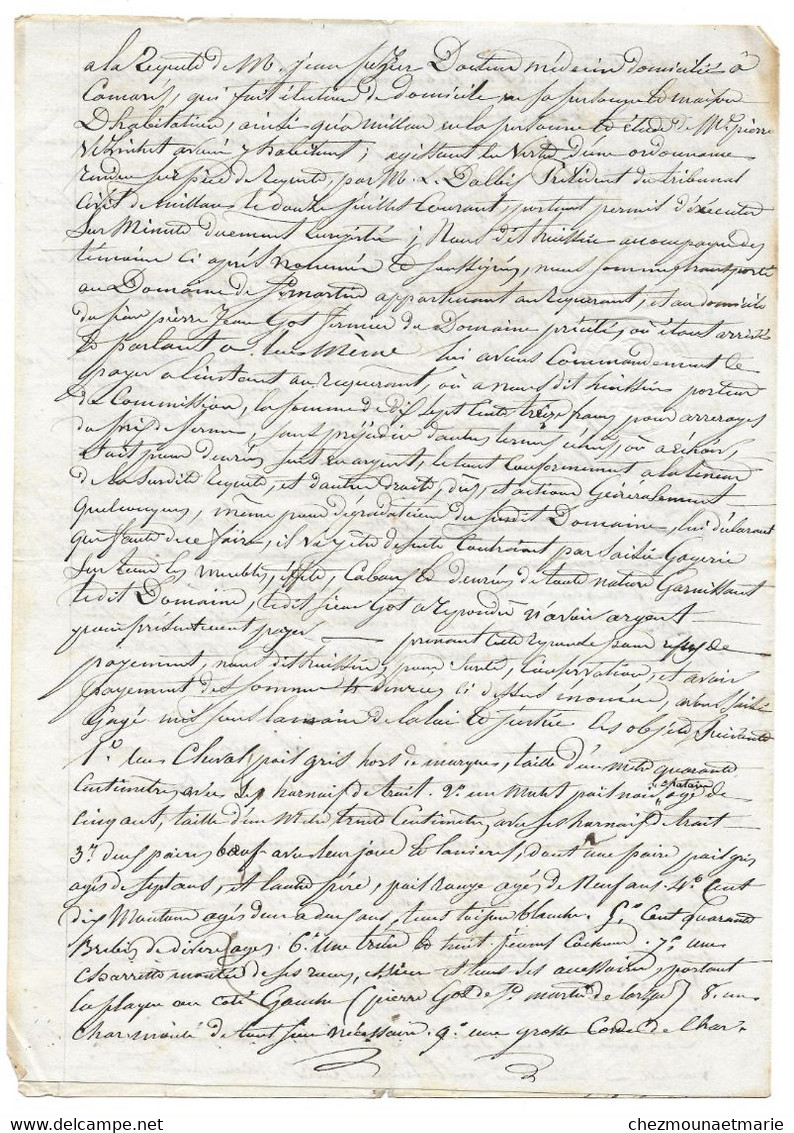 a la Requete de M. jean Docteur médecin domicilié à
Camarés, qui fait élection de domicile en sa personne et maison
D'habitation, ainsi qu'a millau en la personne et étude de Me pierre
avoué y habitant; agissant en Vertu d'une ordonnance
rendue sur pied de requete, par M. L. Dalbis Président du tribunal
Civil de millau le douze juillet Courant, portant permis d'executer
Sur Minute duement enregistré; Nous dit huissier accompagné des
témoins ci après nommés et soussignés, nous sommes transporté
au Domaine de St martin appartenant au Requerant, et au domicile
du sieur pierre Jean Got fermier du Domaine précité, où étant arrivés
et parlant a lui Même lui avons Commandement de
payer a l'instant au requerant, où a nous dit huissier porteur
de Commission, la somme de dix sept cents treize francs pour arrerages
du prix de ferme, sans préjudice d'autres termes echus, où a échoir,
soit pour denrées soit en argent, le tout Conformement a la teneur
de la susdite requete, et d'autres droits, dus, et actions Généralement
quelconques, même pour degradations du susdit Domaine, lui déclarant
que faute de ce faire, il va être de suite Contraint par Saisie Gagerie
Sur tous les meubles, effets, Cabaux et denrées de toute nature Garnissant
ledit Domaine, ledit sieur Got a repondu n'avoir argent
pour présentement payer — prenant cette reponse pour refus de
payement, nous dit huissier, pour Sureté, Conservation, et avoir
payement des sommes et denrées ci dessus, avons saisi
Gagé mis sous la main de la loi et justice les objets Suivants
1.º un Cheval poil gris hors de marques, taille d'un metre quarante
Centimetres avec son harnais de trait. 2.º un Mulet poil noir chatain agé de
cinq ans, taille d'un Metre trente Centimetres, avec ses harnais de trait
3.º deux paires bœufs avec leur joug et lanieres, dont une paire poil gris
agés de sept ans, et l'autre pére, poil Rouge agés de Neuf ans. 4.º Cent
dix Moutons agés d'un a deux ans, leurs toison blanche. 5.º Cent quarante
Brebis de divers ages 6.º une truie et huit jeunes Cochons. 7.º une
Charrette montée de ses roues, essieu et tous ses accessoires, portant
la plaque au coté Gauche (pierre Got de St martin de) 8.º un
Char monté de tout son nécessaire. 9.º une grosse Corde de Char
chezmounaetmarie.com